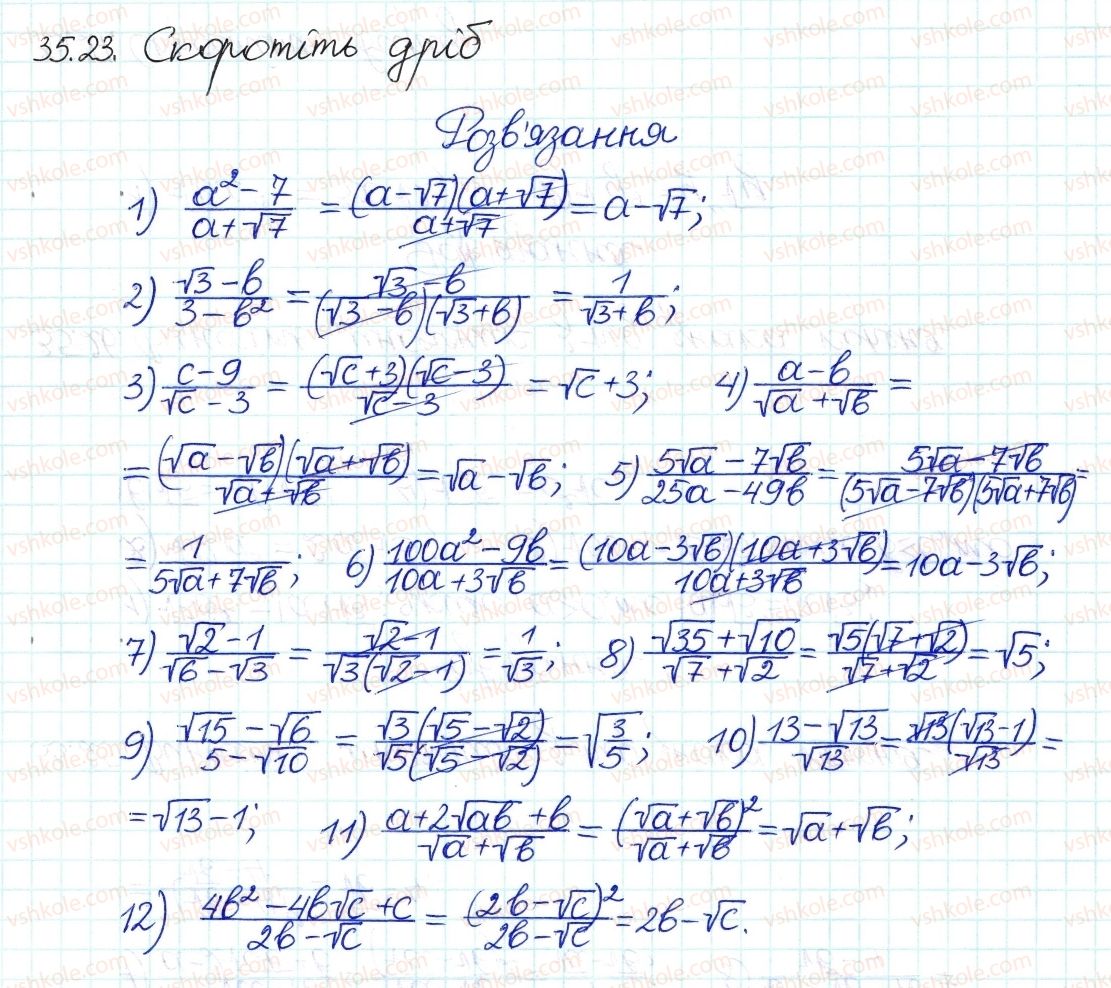 35.23. Скоротіть дріб
Розв'язання
1) (a² - 7)/(a + √7) = ((a - √7)(a + √7))/(a + √7) = a - √7;
2) (√3 - b)/(3 - b²) = (√3 - b)/((√3 - b)(√3 + b)) = 1/(√3 + b);
3) (c - 9)/(√c - 3) = ((√c + 3)(√c - 3))/(√c - 3) = √c + 3; 4) (a - b)/(√a + √b) =
= ((√a - √b)(√a + √b))/(√a + √b) = √a - √b; 5) (5√a - 7√b)/(25a - 49b) = (5√a - 7√b)/((5√a - 7√b)(5√a + 7√b)) =
= 1/(5√a + 7√b); 6) (100a² - 9b)/(10a + 3√b) = ((10a - 3√b)(10a + 3√b))/(10a + 3√b) = 10a - 3√b;
7) (√2 - 1)/(√6 - √3) = (√2 - 1)/(√3(√2 - 1)) = 1/√3; 8) (√35 + √10)/(√7 + √2) = (√5(√7 + √2))/(√7 + √2) = √5;
9) (√15 - √6)/(5 - √10) = (√3(√5 - √2))/(√5(√5 - √2)) = √(3/5); 10) (13 - √13)/√13 = (√13(√13 - 1))/√13 =
= √13 - 1; 11) (a + 2√ab + b)/(√a + √b) = (√a + √b)²/(√a + √b) = √a + √b;
12) (4b² - 4b√c + c)/(2b - √c) = (2b - √c)²/(2b - √c) = 2b - √c.